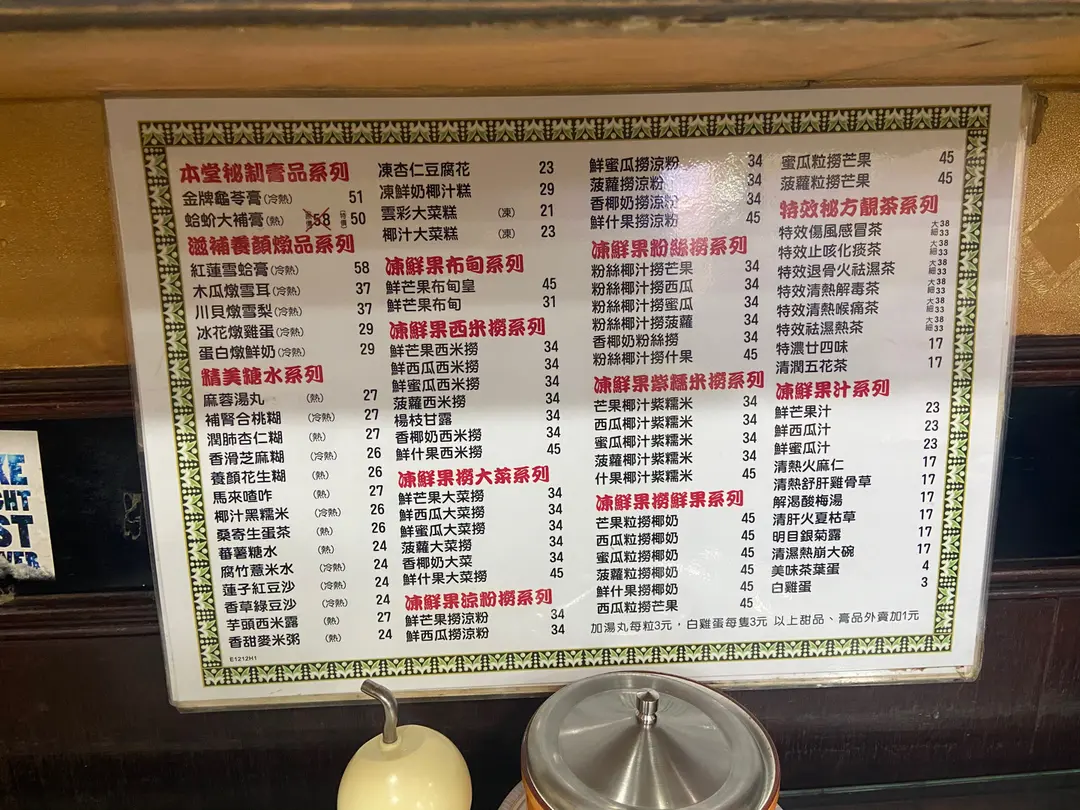 本堂秘制膏品系列
金牌龜苓膏(冷熱) 51
蛤蚧大補膏(熱) 58 特價 50
滋補養顏燉品系列
紅蓮雪蛤膏(冷熱) 58
木瓜燉雪耳(冷熱) 37
川貝燉雪梨(冷熱) 37
冰花燉雞蛋(冷熱) 29
蛋白燉鮮奶(冷熱) 29
精美糖水系列
麻蓉湯丸 (熱) 27
補腎合桃糊 (冷熱) 27
潤肺杏仁糊 (熱) 27
香滑芝麻糊 (冷熱) 26
養顏花生糊 (熱) 26
馬來喳咋 (熱) 27
椰汁黑糯米 (冷熱) 26
桑寄生蛋茶 (熱) 26
蕃薯糖水 (熱) 24
腐竹薏米水 (冷熱) 24
蓮子紅豆沙 (冷熱) 24
香草綠豆沙 (冷熱) 24
芋頭西米露 (熱) 27
香甜麥米粥 (熱) 24
E1212H1
凍杏仁豆腐花 23
凍鮮奶椰汁糕 29
雲彩大菜糕 (凍) 21
椰汁大菜糕 (凍) 23
凍鮮果布甸系列
鮮芒果布甸皇 45
鮮芒果布甸 31
凍鮮果西米撈系列
鮮芒果西米撈 34
鮮西瓜西米撈 34
鮮蜜瓜西米撈 34
菠蘿西米撈 34
楊枝甘露 34
香椰奶西米撈 34
鮮什果西米撈 45
凍鮮果撈大菜系列
鮮芒果大菜撈 34
鮮西瓜大菜撈 34
鮮蜜瓜大菜撈 34
菠蘿大菜撈 34
香椰奶大菜 34
鮮什果大菜撈 45
凍鮮果涼粉撈系列
鮮芒果撈涼粉 34
鮮西瓜撈涼粉 34
鮮蜜瓜撈涼粉 34
菠蘿撈涼粉 34
香椰奶撈涼粉 34
鮮什果撈涼粉 45
凍鮮果粉絲撈系列
粉絲椰汁撈芒果 34
粉絲椰汁撈西瓜 34
粉絲椰汁撈蜜瓜 34
粉絲椰汁撈菠蘿 34
香椰奶粉絲撈 34
粉絲椰汁撈什果 45
凍鮮果紫糯米撈系列
芒果椰汁紫糯米 34
西瓜椰汁紫糯米 34
蜜瓜椰汁紫糯米 34
菠蘿椰汁紫糯米 34
什果椰汁紫糯米 45
凍鮮果撈鮮果系列
芒果粒撈椰奶 45
西瓜粒撈椰奶 45
蜜瓜粒撈椰奶 45
菠蘿粒撈椰奶 45
鮮什果撈椰奶 45
西瓜粒撈芒果 45
蜜瓜粒撈芒果 45
菠蘿粒撈芒果 45
特效秘方靚茶系列
特效傷風感冒茶 大38 細33
特效止咳化痰茶 大38 細33
特效退骨火祛濕茶 大38 細33
特效清熱解毒茶 大38 細33
特效清熱喉痛茶 大38 細33
特效祛濕熱茶 大38 細33
特濃廿四味 17
清潤五花茶 17
凍鮮果汁系列
鮮芒果汁 23
鮮西瓜汁 23
鮮蜜瓜汁 23
清熱火麻仁 17
清熱舒肝雞骨草 17
解渴酸梅湯 17
清肝火夏枯草 17
明目銀菊露 17
清濕熱崩大碗 17
美味茶葉蛋 4
白雞蛋 3
加湯丸每粒3元，白雞蛋每隻3元 以上甜品、膏品外賣加1元